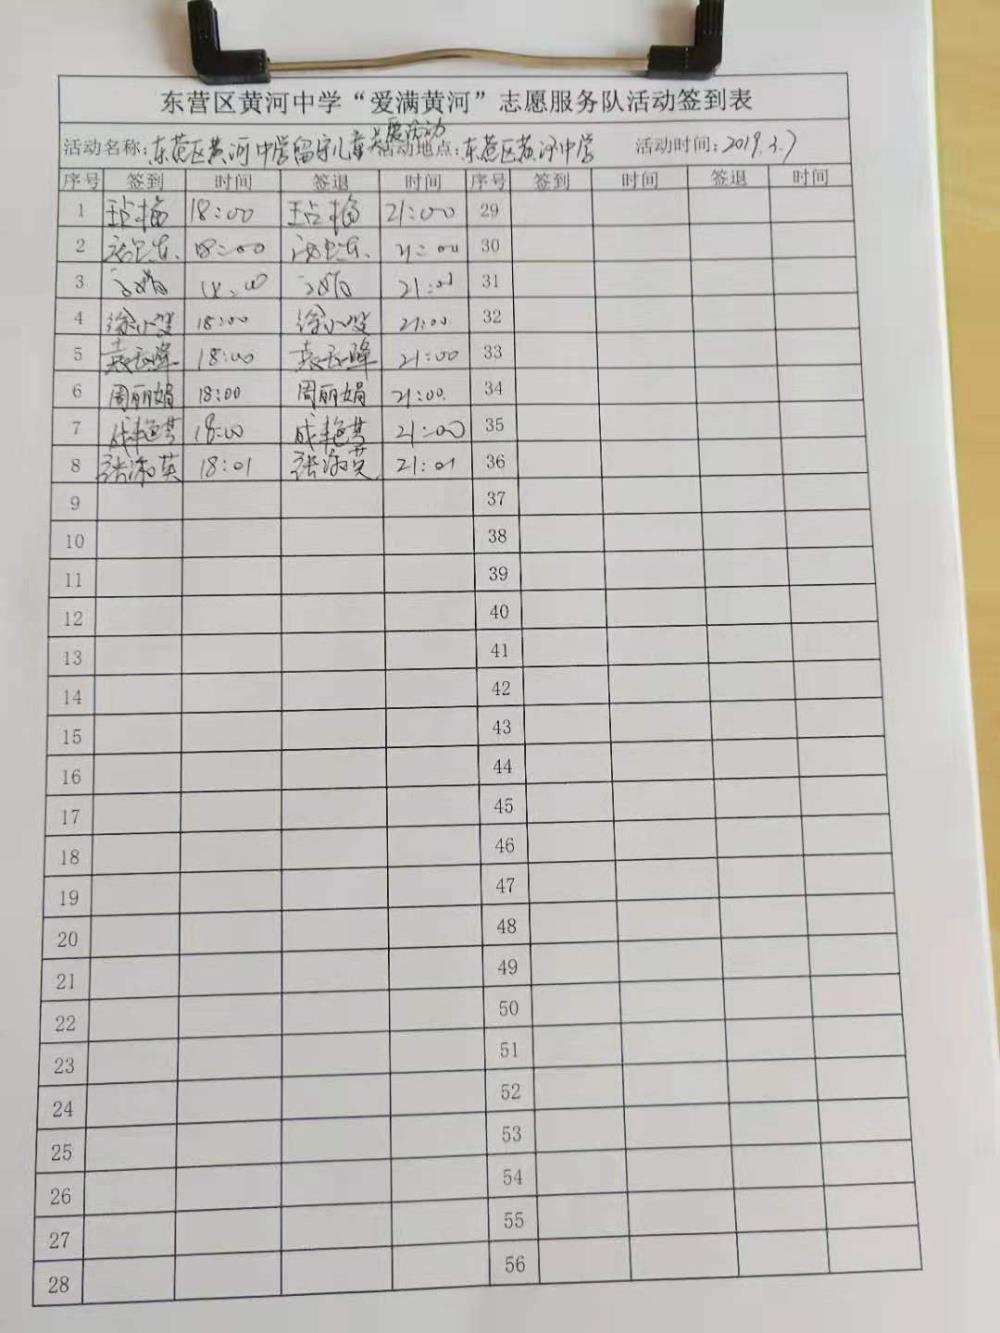 东营区黄河中学“爱满黄河”志愿服务队活动签到表
活动名称：东营区黄河中学留守儿童关爱活动 活动地点：东营区黄河中学 活动时间：2019.3.7
序号 签到 时间 签退 时间 序号 签到 时间 签退 时间
1 18:00 21:00 29
2 18:00 21:00 30
3 18:00 21:00 31
4 18:00 21:00 32
5 18:00 21:00 33
6 周丽娟 18:00 周丽娟 21:00 34
7 成艳梦 18:00 成艳梦 21:00 35
8 张淑英 18:01 张淑英 21:01 36
9 37
10 38
11 39
12 40
13 41
14 42
15 43
16 44
17 45
18 46
19 47
20 48
21 49
22 50
23 51
24 52
25 53
26 54
27 55
28 56